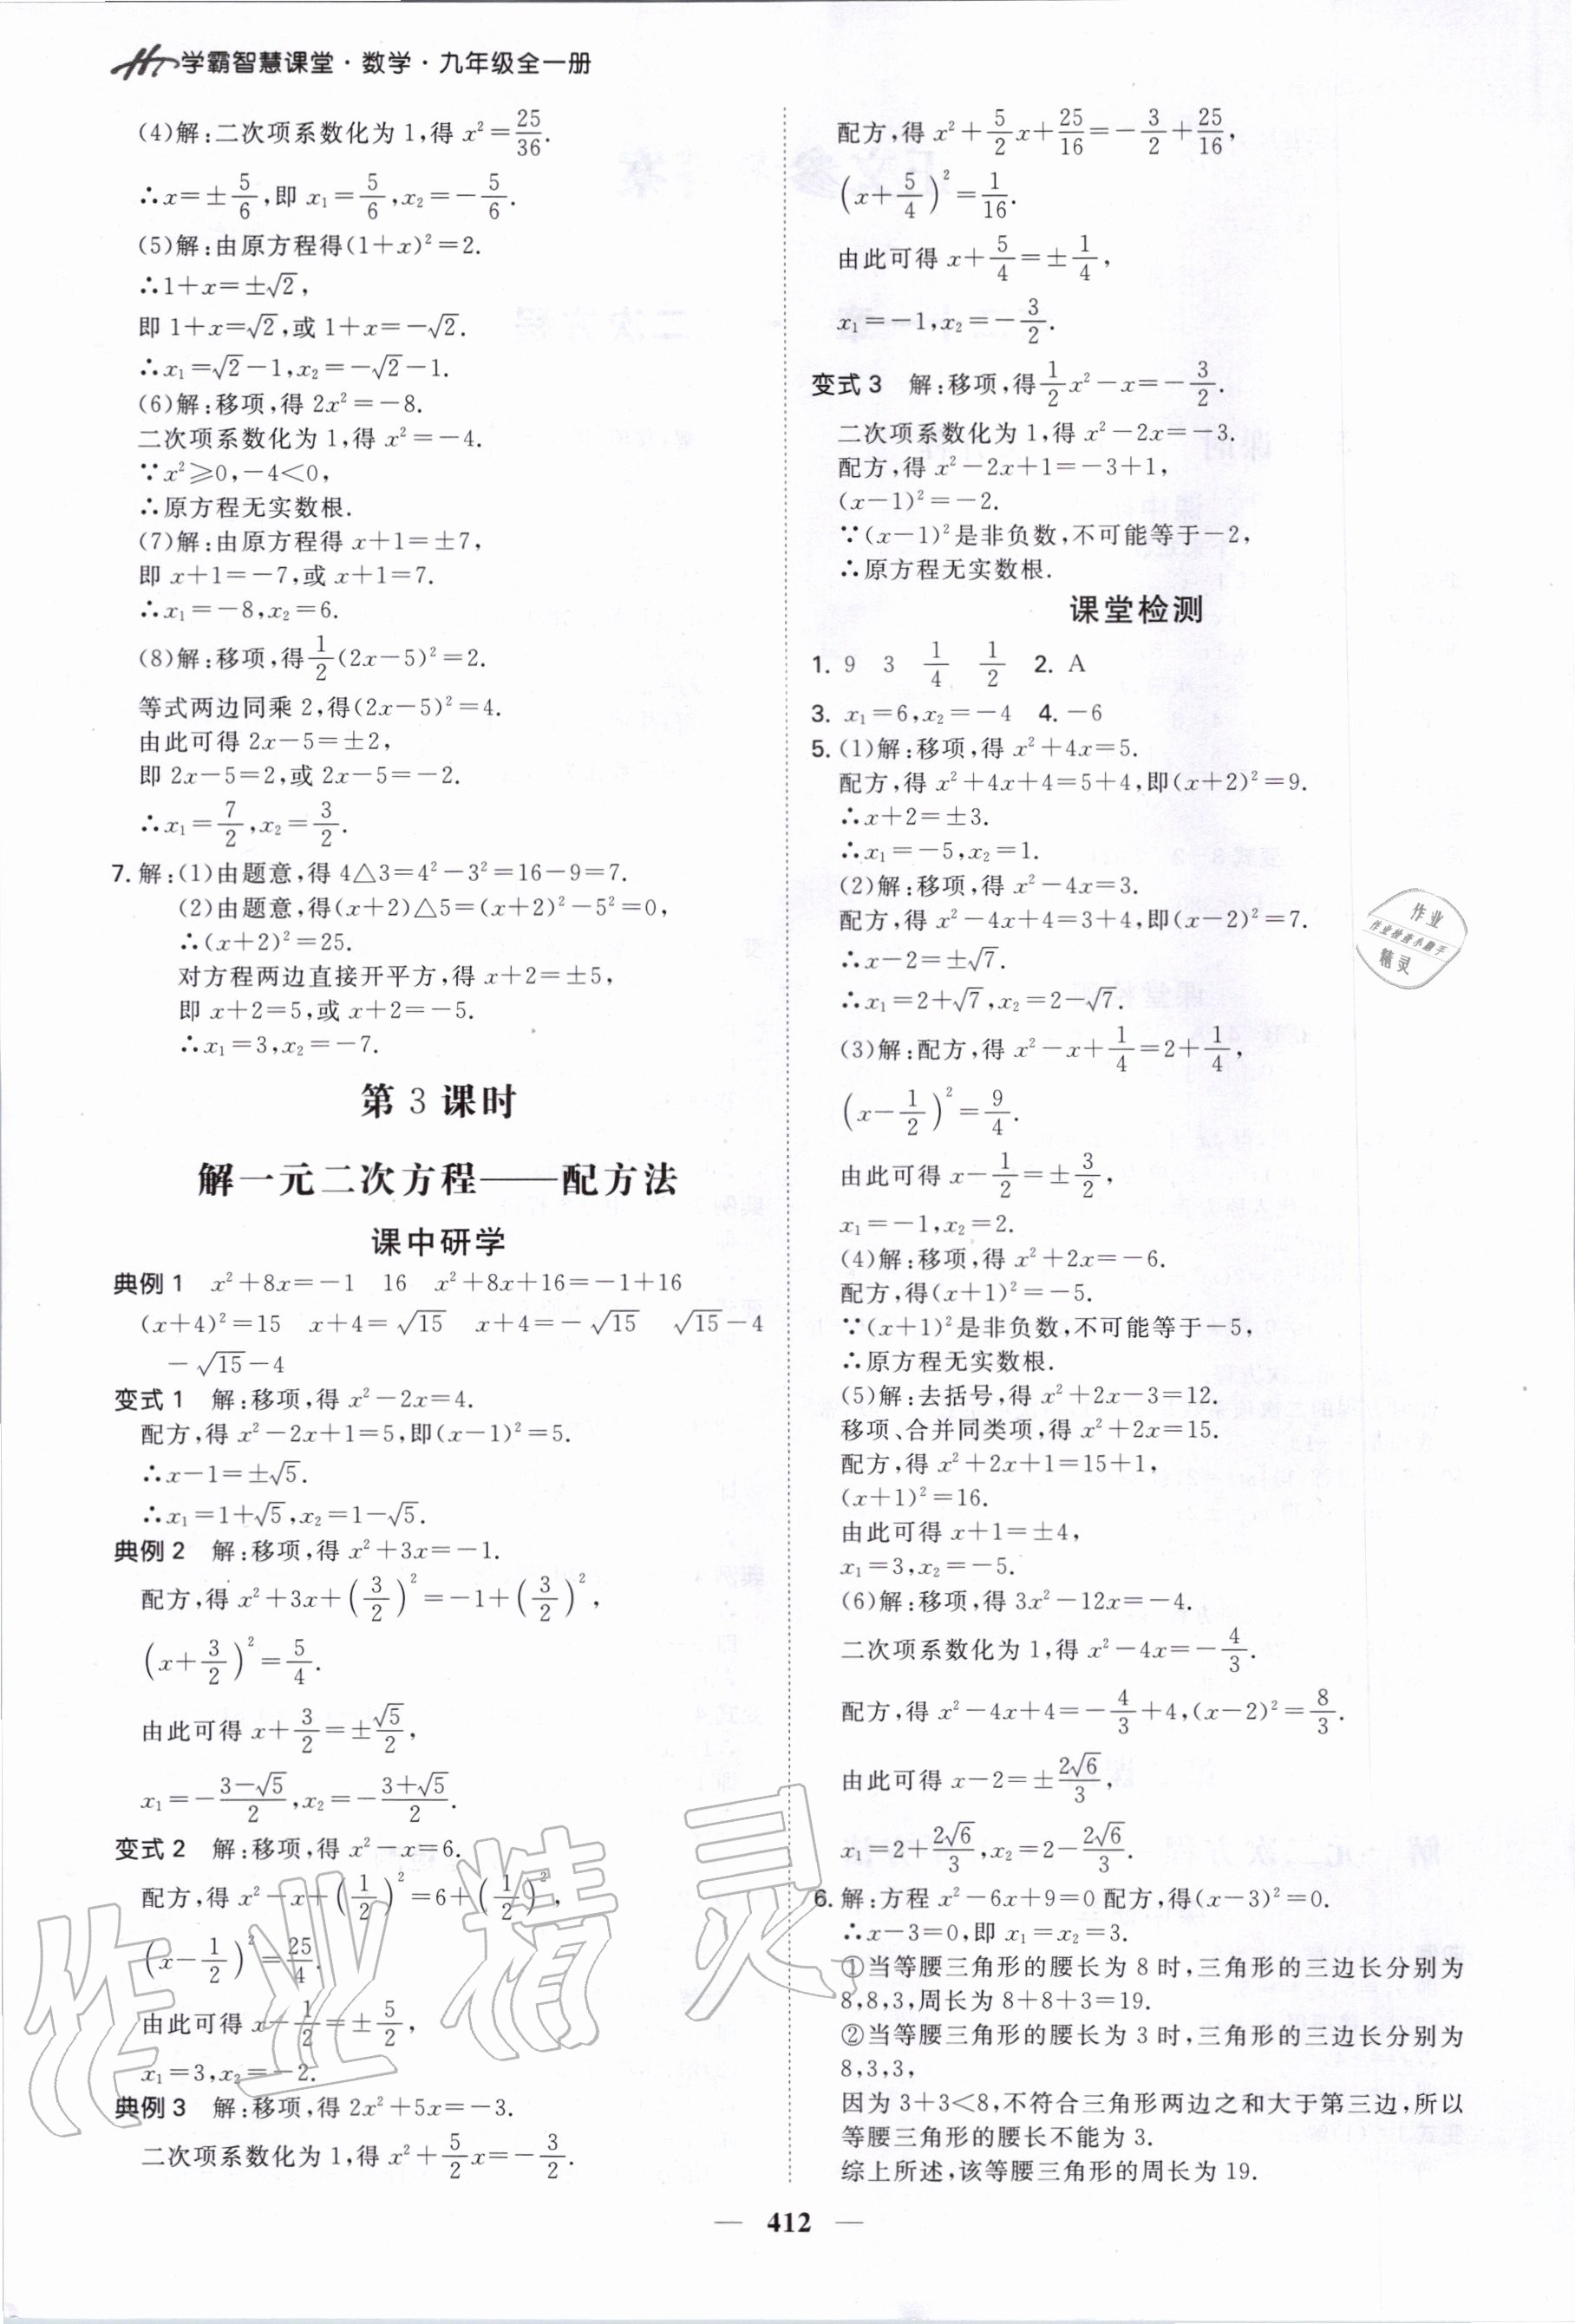 学霸智慧课堂·数学·九年级全一册
(4)解:二次项系数化为1,得 x²=25/36.
∴x=±5/6,即 x₁=5/6,x₂=-5/6.
(5)解:由原方程得(1+x)²=2.
∴1+x=±√2,
即 1+x=√2,或 1+x=-√2.
∴x₁=√2-1,x₂=-√2-1.
(6)解:移项,得 2x²=-8.
二次项系数化为1,得 x²=-4.
∵x²≥0,-4<0,
∴原方程无实数根.
(7)解:由原方程得 x+1=±7,
即 x+1=-7,或 x+1=7.
∴x₁=-8,x₂=6.
(8)解:移项,得1/2(2x-5)²=2.
等式两边同乘2,得(2x-5)²=4.
由此可得 2x-5=±2,
即 2x-5=2,或 2x-5=-2.
∴x₁=7/2,x₂=3/2.
7.解:(1)由题意,得 4△3=4²-3²=16-9=7.
(2)由题意,得(x+2)△5=(x+2)²-5²=0,
∴(x+2)²=25.
对方程两边直接开平方,得 x+2=±5,
即 x+2=5,或 x+2=-5.
∴x₁=3,x₂=-7.
第3课时
解一元二次方程——配方法
课中研学
典例1 x²+8x=-1 16 x²+8x+16=-1+16
(x+4)²=15 x+4=√15 x+4=-√15 √15-4
-√15-4
变式1 解:移项,得 x²-2x=4.
配方,得 x²-2x+1=5,即(x-1)²=5.
∴x-1=±√5.
∴x₁=1+√5,x₂=1-√5.
典例2 解:移项,得 x²+3x=-1.
配方,得 x²+3x+(3/2)²=-1+(3/2)²,
(x+3/2)²=5/4.
由此可得 x+3/2=±√5/2,
x₁=-(3-√5)/2,x₂=-(3+√5)/2.
变式2 解:移项,得 x²-x=6.
配方,得 x²-x+(1/2)²=6+(1/2)²,
(x-1/2)²=25/4.
由此可得 x-1/2=±5/2,
x₁=3,x₂=-2.
典例3 解:移项,得 2x²+5x=-3.
二次项系数化为1,得 x²+5/2x=-3/2.
配方,得 x²+5/2x+25/16=-3/2+25/16,
(x+5/4)²=1/16.
由此可得 x+5/4=±1/4,
x₁=-1,x₂=-3/2.
变式3 解:移项,得1/2x²-x=-3/2.
二次项系数化为1,得 x²-2x=-3.
配方,得 x²-2x+1=-3+1,
(x-1)²=-2.
∵(x-1)²是非负数,不可能等于-2,
∴原方程无实数根.
课堂检测
1. 9 3 1/4 1/2 2. A
3. x₁=6,x₂=-4 4. -6
5.(1)解:移项,得 x²+4x=5.
配方,得 x²+4x+4=5+4,即(x+2)²=9.
∴x+2=±3.
∴x₁=-5,x₂=1.
(2)解:移项,得 x²-4x=3.
配方,得 x²-4x+4=3+4,即(x-2)²=7.
∴x-2=±√7.
∴x₁=2+√7,x₂=2-√7.
(3)解:配方,得 x²-x+1/4=2+1/4,
(x-1/2)²=9/4.
由此可得 x-1/2=±3/2,
x₁=-1,x₂=2.
(4)解:移项,得 x²+2x=-6.
配方,得(x+1)²=-5.
∵(x+1)²是非负数,不可能等于-5,
∴原方程无实数根.
(5)解:去括号,得 x²+2x-3=12.
移项、合并同类项,得 x²+2x=15.
配方,得 x²+2x+1=15+1,
(x+1)²=16.
由此可得 x+1=±4,
x₁=3,x₂=-5.
(6)解:移项,得 3x²-12x=-4.
二次项系数化为1,得 x²-4x=-4/3.
配方,得 x²-4x+4=-4/3+4,(x-2)²=8/3.
由此可得 x-2=±2√6/3,
x₁=2+2√6/3,x₂=2-2√6/3.
6.解:方程 x²-6x+9=0 配方,得(x-3)²=0.
∴x-3=0,即 x₁=x₂=3.
①当等腰三角形的腰长为8时,三角形的三边长分别为
8,8,3,周长为 8+8+3=19.
②当等腰三角形的腰长为3时,三角形的三边长分别为
8,3,3,
因为 3+3<8,不符合三角形两边之和大于第三边,所以
等腰三角形的腰长不能为3.
综上所述,该等腰三角形的周长为19.
作业
作业检查小助手
精灵
作业精灵
— 412 —